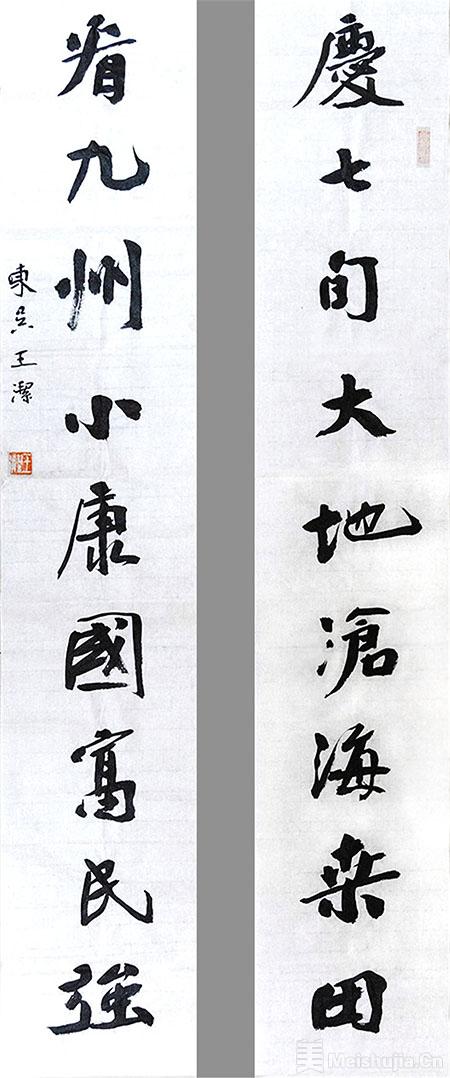 慶七旬大地滄海桑田
看九州小康國富民強
東吳王潔
美 Meishujia.Cn